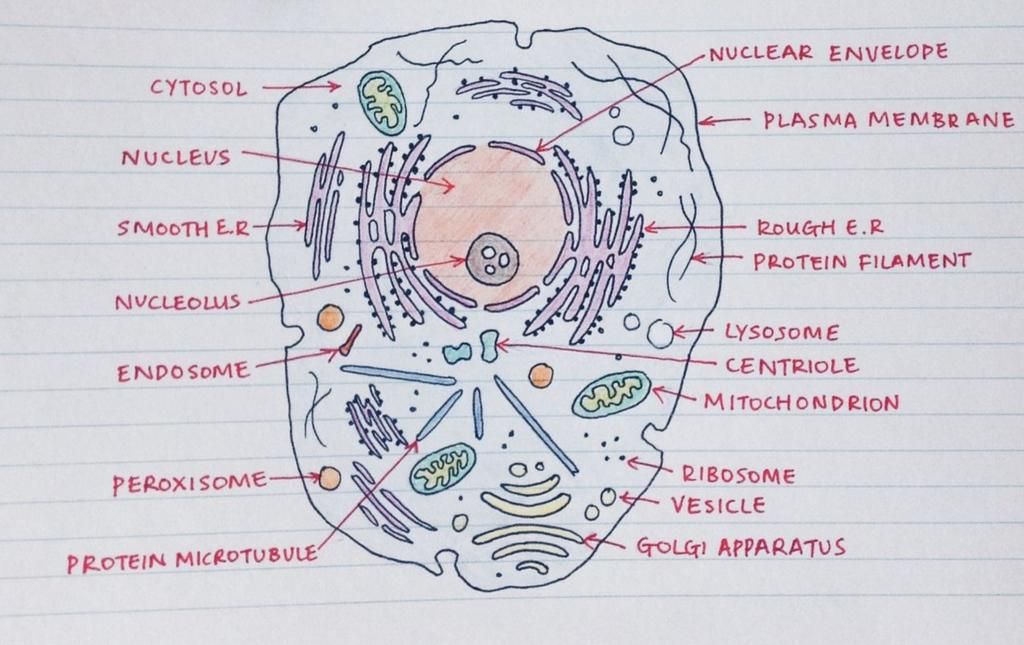 CYTOSOL
NUCLEUS
SMOOTH E.R
NUCLEOLUS
ENDOSOME
PEROXISOME
PROTEIN MICROTUBULE
NUCLEAR ENVELOPE
PLASMA MEMBRANE
ROUGH E.R
PROTEIN FILAMENT
LYSOSOME
CENTRIOLE
MITOCHONDRION
RIBOSOME
VESICLE
GOLGI APPARATUS